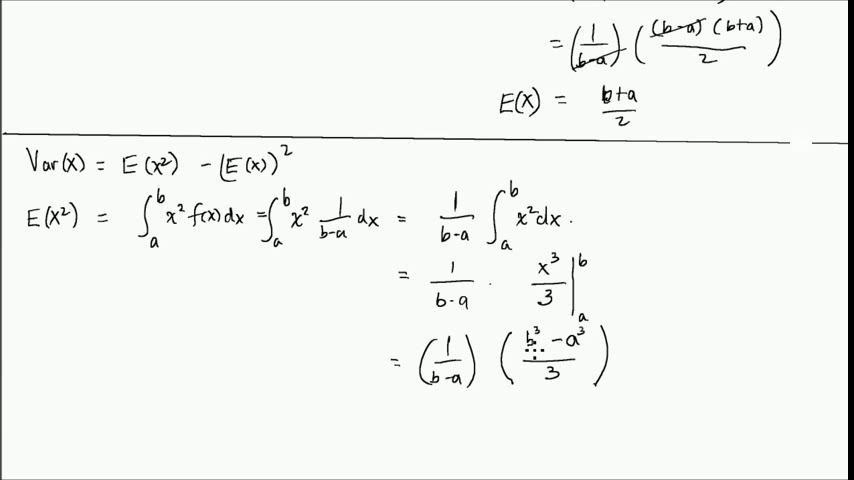 = (1/(b-a)) ((b-a)(b+a)/2)
E(X) = (b+a)/2
Var(X) = E(X²) - (E(X))²
E(X²) = ∫_a^b x² f(x) dx = ∫_a^b x² 1/(b-a) dx = 1/(b-a) ∫_a^b x² dx.
= 1/(b-a) · x³/3 |_a^b
= (1/(b-a)) ((b³ - a³)/3)